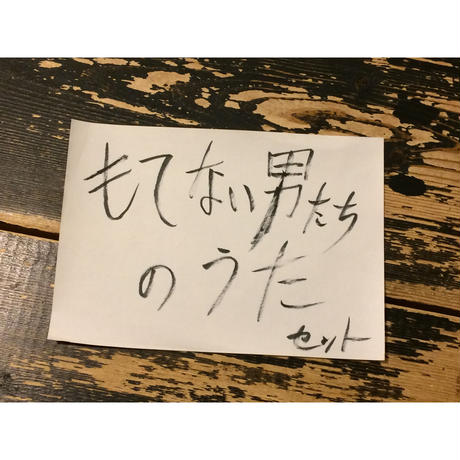 もてない男たち
のうた
セット